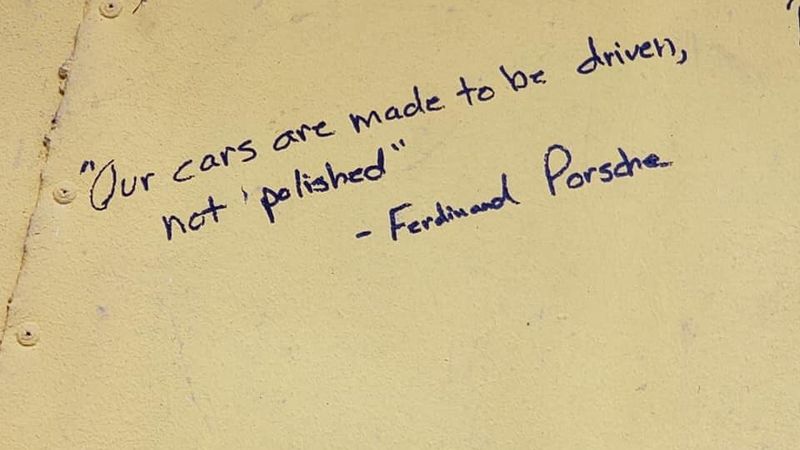 "Our cars are made to be driven,
not polished"
- Ferdinand Porsche